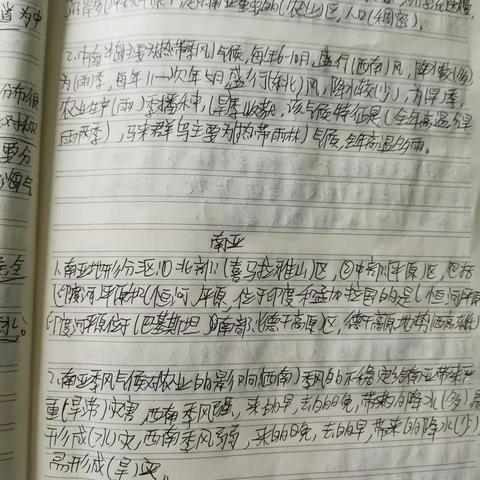 2.中南半岛主要为热带季风气候,每年6-10月,盛行(西南)风,降水(多)
为(雨)季,每年11—次年5月,盛行(东北)风,降水(少),为(旱)季,
农业生产(雨)季播种,(旱)季收获,该气候特征是(全年高温,分旱
雨两季),马来群岛主要为(热带雨林)气候,全年高温多雨。
南亚
1.南亚地形分三区:①北部:(喜马拉雅山)区,②中部:(平原)区,包括
(印度河)平原和(恒河)平原,位于印度和孟加拉国的是(恒河)平原
(印度河)平原位于(巴基斯坦)③南部:(德干高原)区,德干高原地势(西高东低)
2.南亚季风气候对农业的影响(西南)季风的不稳定给南亚带来严
重(旱涝)灾害,西南季风强,来的早,去的晚,带来的降水(多)易
形成(水)灾,西南季风弱,来的晚,去的早,带来的降水(少)
易形成(旱)灾。